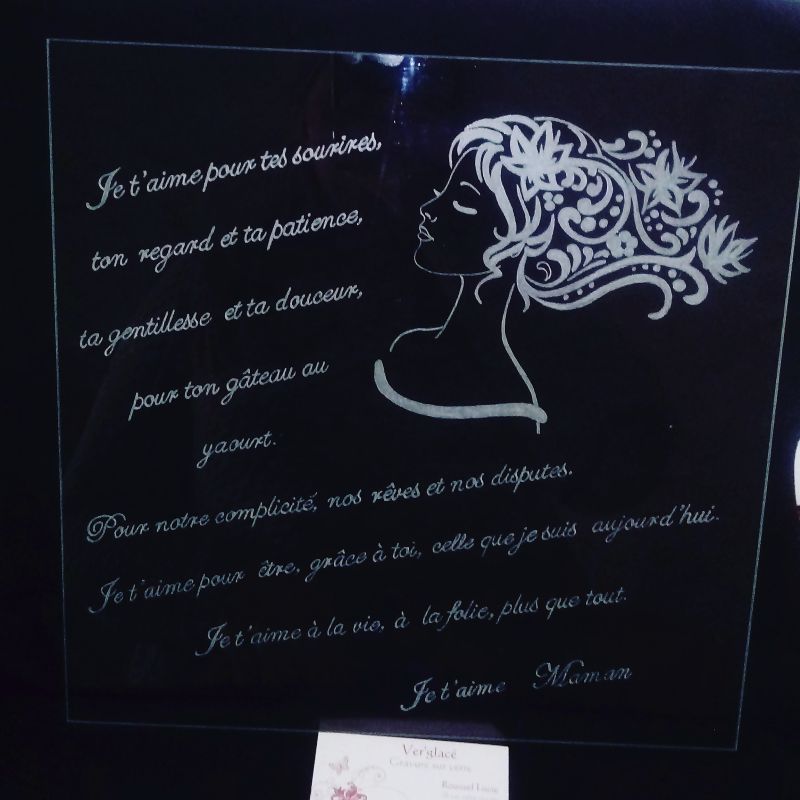 Je t'aime pour tes sourires,
ton regard et ta patience,
ta gentillesse et ta douceur,
pour ton gâteau au
yaourt.
Pour notre complicité, nos rêves et nos disputes.
Je t'aime pour être, grâce à toi, celle que je suis aujourd'hui.
Je t'aime à la vie, à la folie, plus que tout.
Je t'aime Maman
Ver'glacé
Gravure sur verre